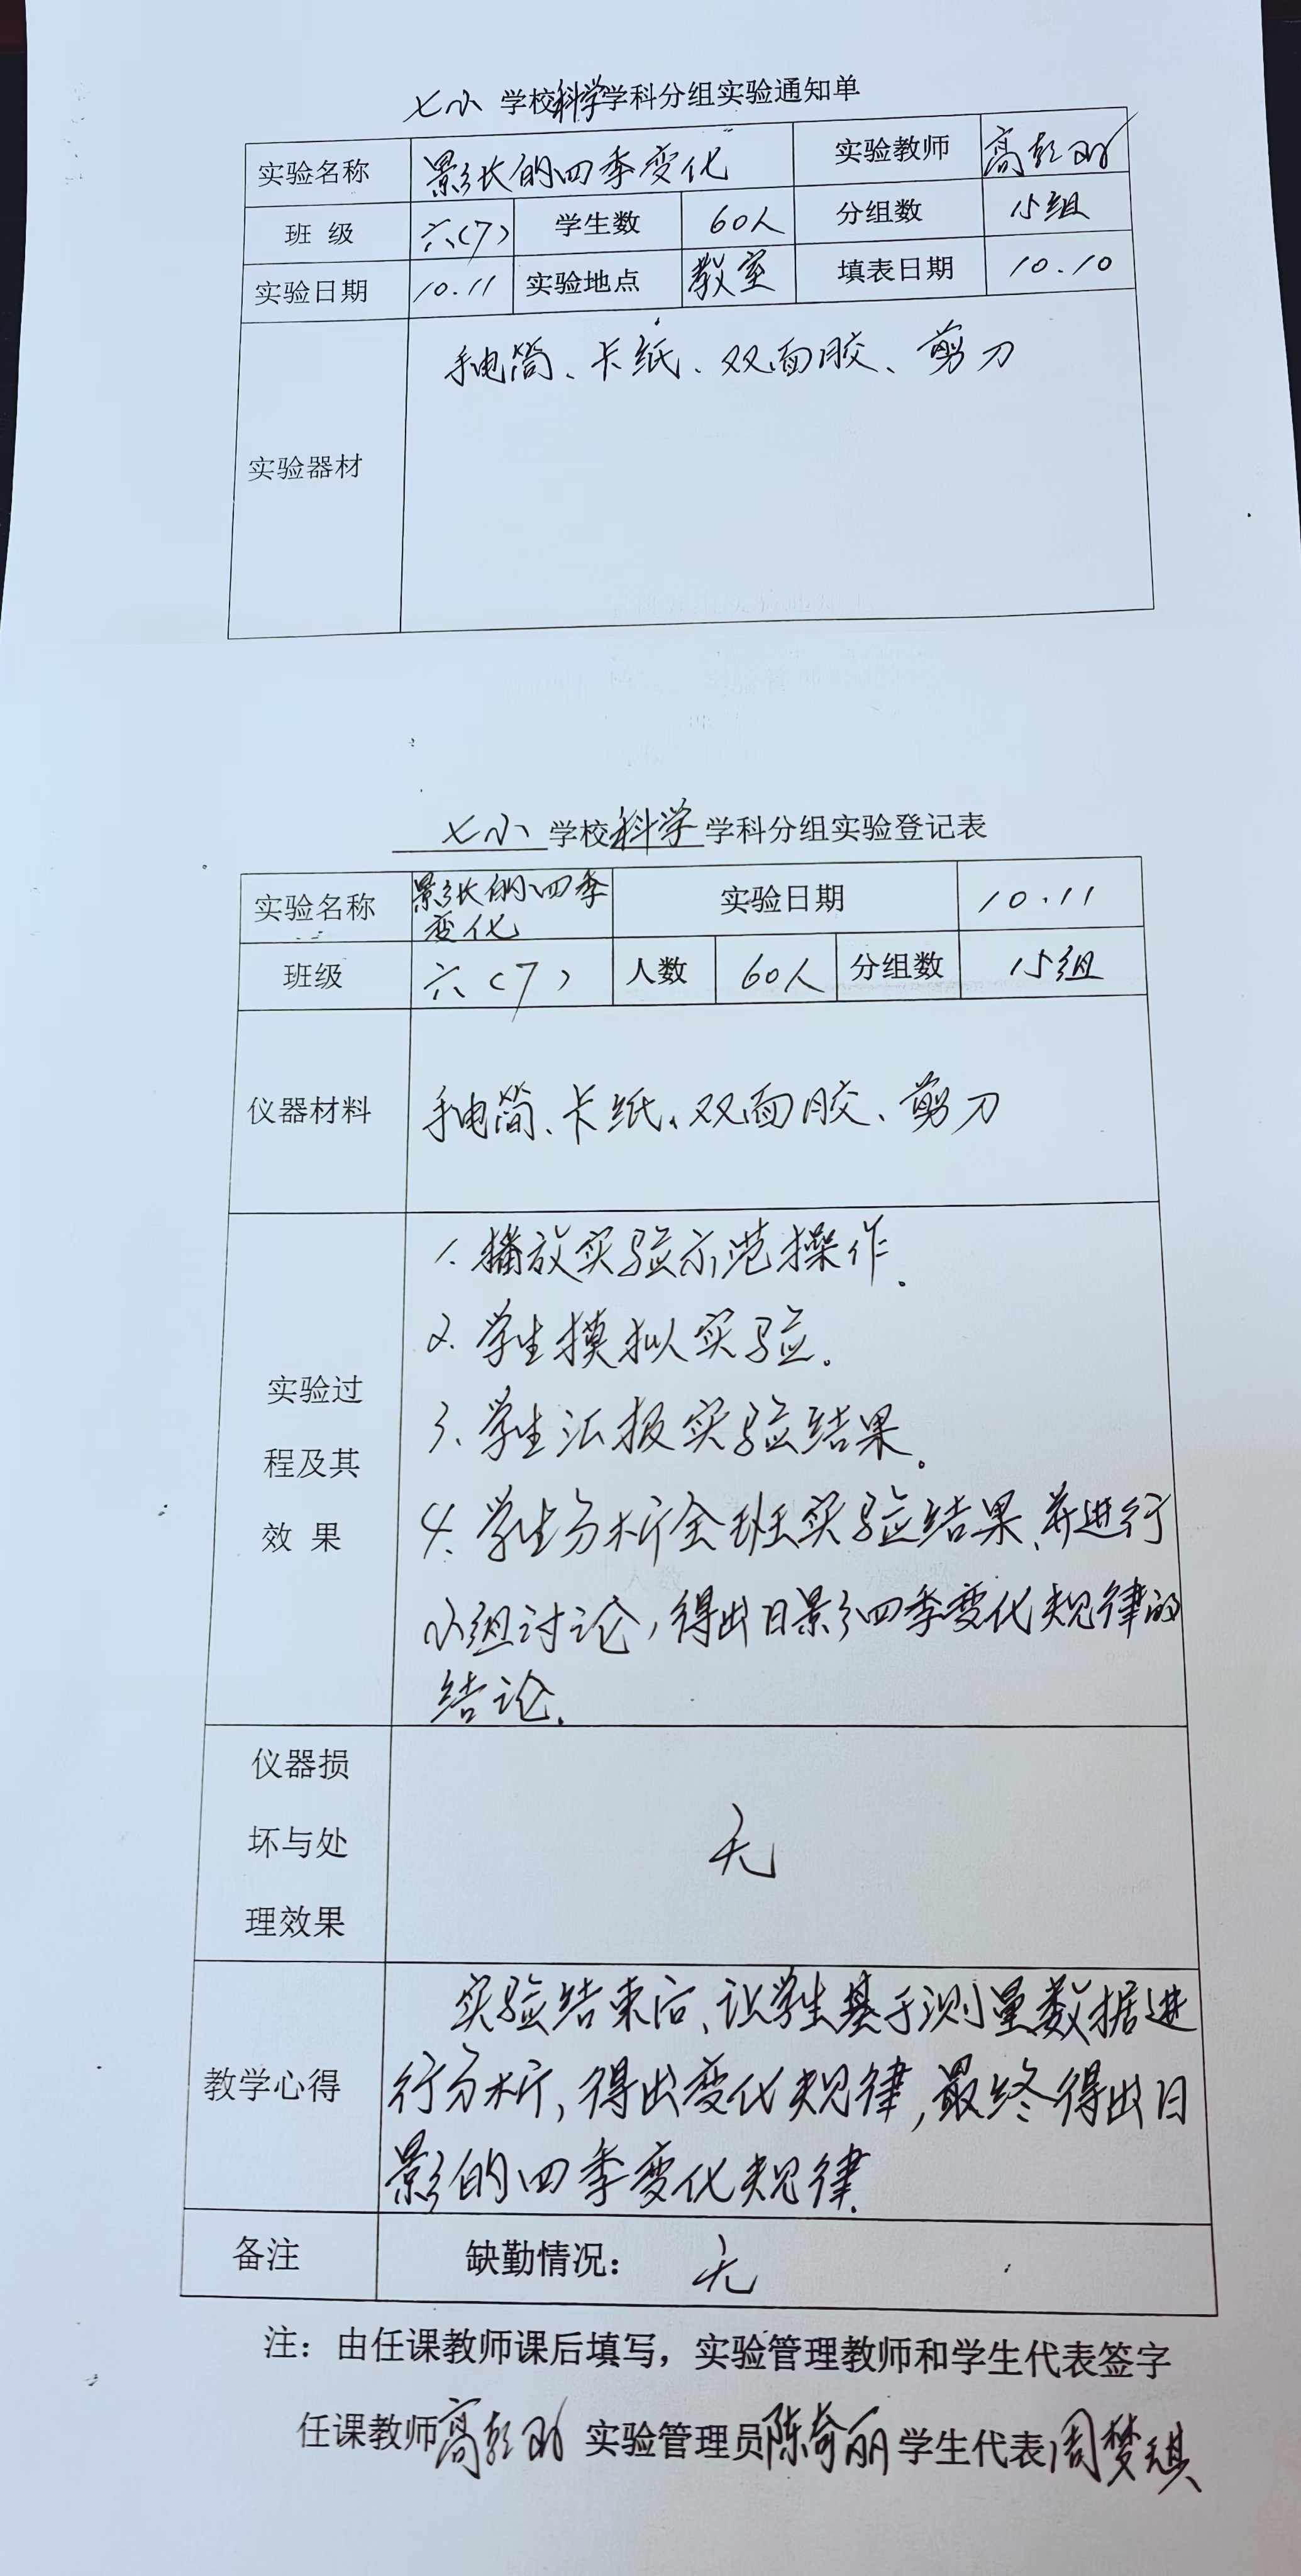 七小 学校科学学科分组实验通知单
实验名称 影长的四季变化 实验教师 高
班 级 六(7) 学生数 60人 分组数 15组
实验日期 10.11 实验地点 教室 填表日期 10.10
实验器材 手电筒、卡纸、双面胶、剪刀
七小 学校科学学科分组实验登记表
实验名称 影长的四季
变化 实验日期 10.11
班级 六(7) 人数 60人 分组数 15组
仪器材料 手电筒、卡纸、双面胶、剪刀
实验过
程及其
效 果
1. 播放实验示范操作.
2. 学生模拟实验。
3、学生汇报实验结果。
4、学生分析全班实验结果、并进行
小组讨论，得出日影四季变化规律的
结论.
仪器损
坏与处
理效果
无
教学心得
实验结束后、让学生基于测量数据进
行分析，得出变化规律，最终得出日
影的四季变化规律.
备注 缺勤情况： 无
注：由任课教师课后填写，实验管理教师和学生代表签字
任课教师高 实验管理员陈奇丽 学生代表周梦琪